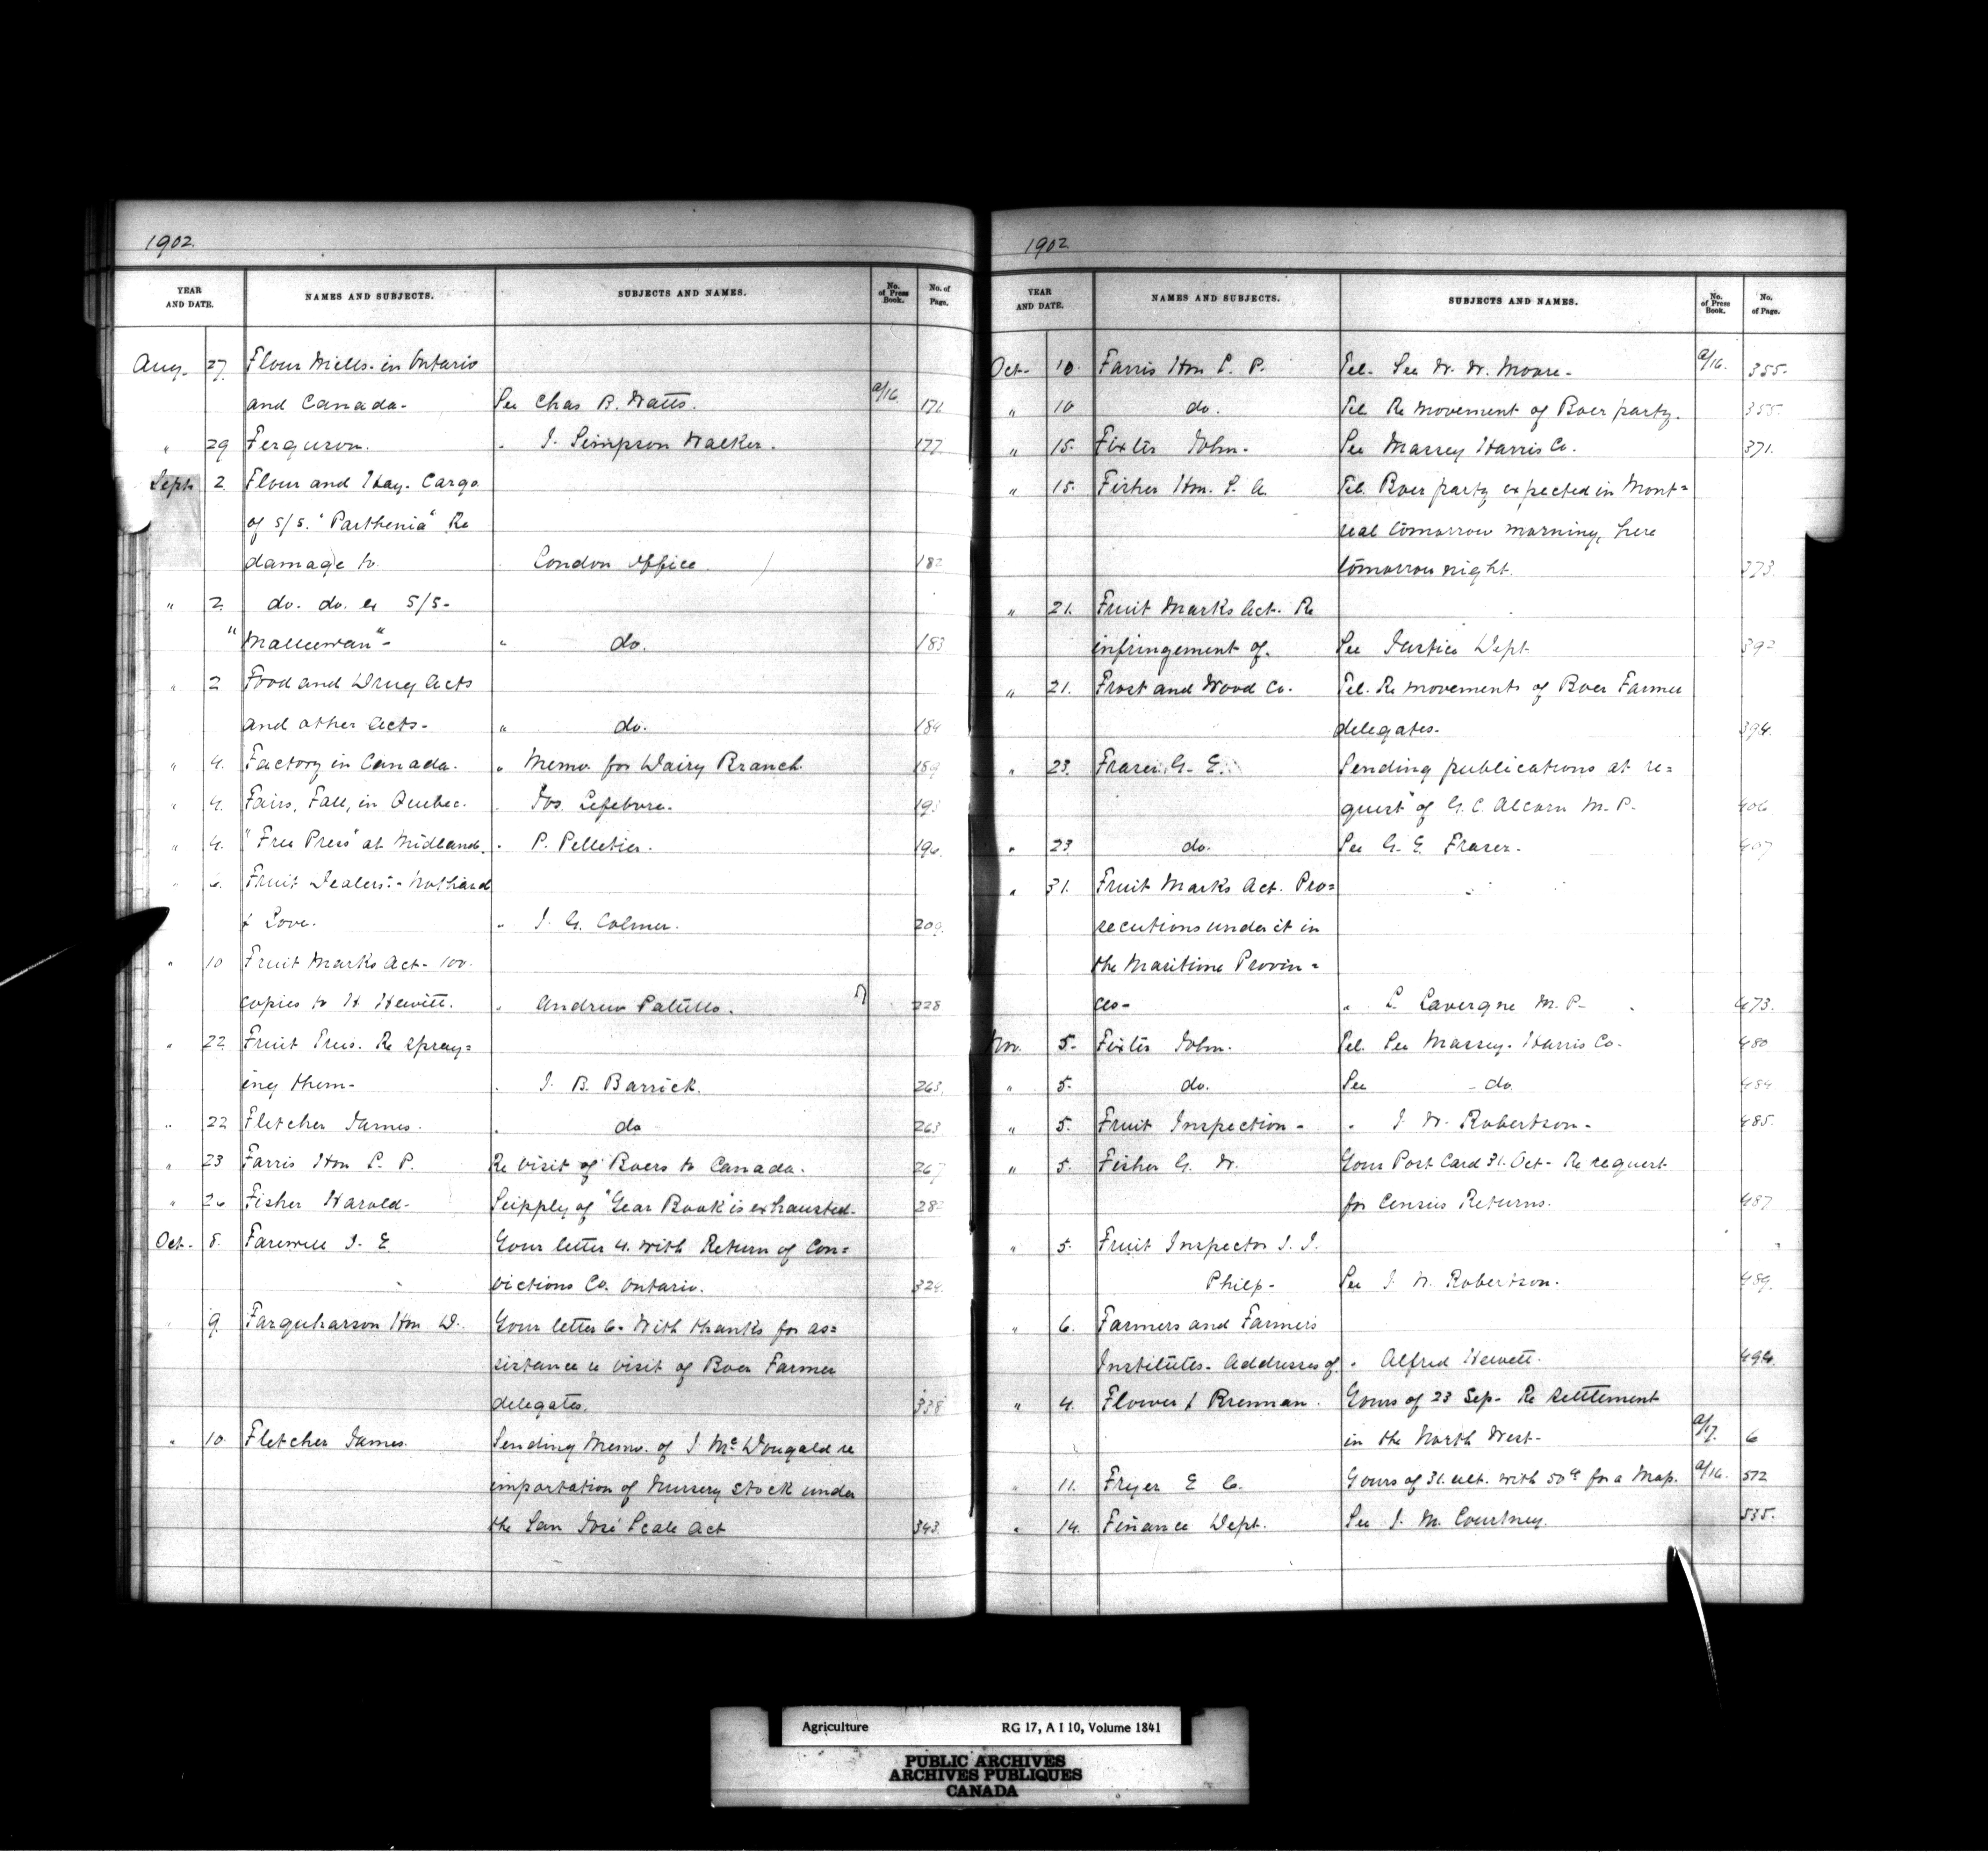 1902.
YEAR AND DATE. NAMES AND SUBJECTS. SUBJECTS AND NAMES. No. of Press Book. No. of Page.
Aug. 27 Flour Mills in Ontario
and Canada. See Chas B. Watts. a/16. 171
" 29 Ferguson. " J. Simpson Walker. 177
Sept 2 Flour and Hay. Cargo
of S/S. "Parthenia" Re
damage to " London Office 182
" 2 do. do. ex S/S.
" " do. 183
" 2 Food and Drug Acts
and other Acts. " do. 184
" 4. Factory in Canada. " Memo. for Dairy Branch. 189
" 4. Fairs, Fall, in Quebec. " Jos. Lefebvre. 193
" 4. "Free Press" at Midland. " P. Pelletier. 196
" 6. Fruit Dealers:- Nothard
& Lowe. " J. G. Colmer. 200
" 10 Fruit Marks Act. 100.
copies to H. Hewitt. " Andrew Patullo. 228
" 22 Fruit Trees. Re spray=
ing them. " J. B. Barrick. 263
" 22 Fletcher James. " do 263
" 23 Farris Hon L. P. Re visit of Boers to Canada. 267
" 26 Fisher Harold. Supply of "Year Book" is exhausted. 282
Oct. 8. Farewell J. E Your letter 4. with Return of Con=
victions Co. Ontario. 324
" 9. Farquharson Hon D. Your letter 6. With thanks for as=
sistance re visit of Boer Farmer
delegates. 338
" 10. Fletcher James. Sending Memo. of J. McDougald re
importation of Nursery Stock under
the San José Scale Act 343.
1902.
YEAR AND DATE. NAMES AND SUBJECTS. SUBJECTS AND NAMES. No. of Press Book. No. of Page.
Oct. 10. Farris Hon L. P. Tel. See W. W. Moore. a/16. 355.
" 10 do. Tel. Re Movement of Boer party. 355.
" 15. Fixter John. See Massey Harris Co. 371.
" 15. Fisher Hon. S. A. Tel. Boer party expected in Mont=
real tomorrow morning, here
tomorrow night. 373.
" 21. Fruit Marks Act. Re
infringement of. See Justice Dept. 392
" 21. Frost and Wood Co. Tel. Re movements of Boer Farmer
delegates. 394.
" 23. Fraser G. E. Sending publications at re=
quest of G. C. Alcorn M. P. 406
" 23 do. See G. E. Fraser. 407
" 31. Fruit Marks Act. Pro=
secutions under it in
the Maritime Provin=
ces- " L. Lavergne M. P. 473.
Nov. 5. Fixter John. Tel. See Massey. Harris Co. 480
" 5. do. See do 484
" 5. Fruit Inspection. " J. W. Robertson. 485.
" 5. Fisher G. W. Your Post Card 31. Oct. Re request
for Census Returns. 487
" 5. Fruit Inspector J. J.
Philp. See J. W. Robertson. 489.
" 6. Farmers and Farmers
Institutes. Addresses of. " Alfred Hewett. 494.
" 4. Flower & Brennan. Yours of 23 Sep. Re settlement
in the North West. a/17. 6
" 11. Fryer E C. Yours of 31. ult. with 50¢ for a Map. a/16. 512
" 14. Finance Dept. See J. M. Courtney. 535.
Agriculture RG 17, A I 10, Volume 1841
PUBLIC ARCHIVES
ARCHIVES PUBLIQUES
CANADA